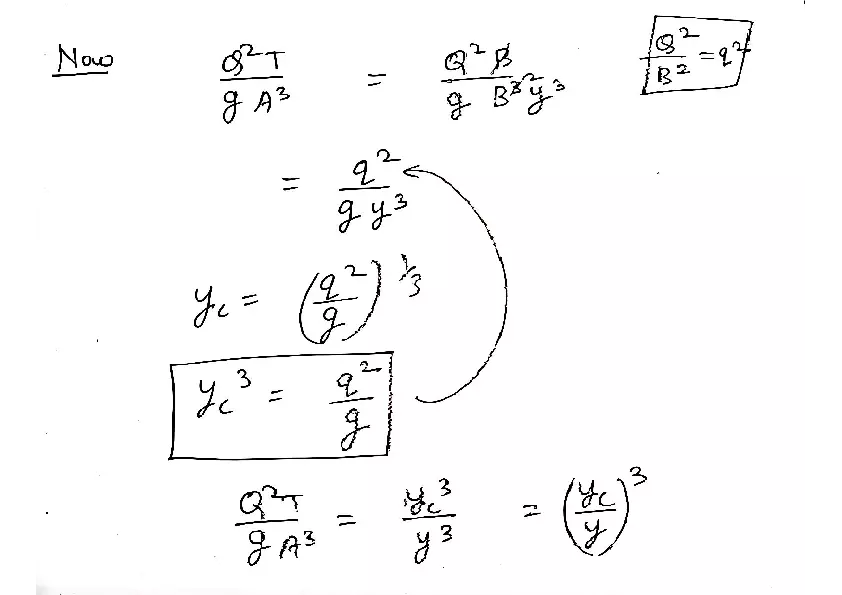 Now Q²T / g A³ = Q² B / g B³² y³ Q² / B² = q²
= q² / g y³
y_c = (q² / g)^1/3
y_c³ = q² / g
Q²T / g A³ = y_c³ / y³ = (y_c / y)³